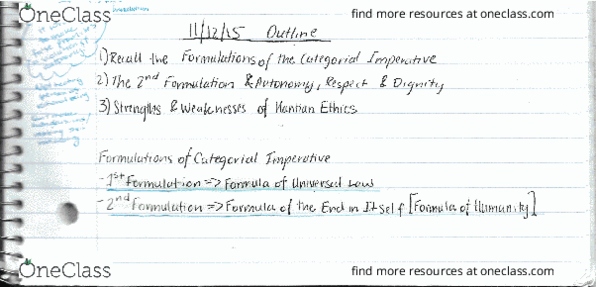 OneClass
find more resources at oneclass.com
11/12/15 Outline
1) Recall the Formulations of the Categorial Imperative
2) The 2nd Formulation & Autonomy, Respect & Dignity
3) Strengths & Weaknesses of Kantian Ethics
Formulations of Categorial Imperative
- 1st Formulation => Formula of Universal Law
- 2nd Formulation => Formula of the End in Itself [Formula of Humanity]
OneClass
find more resources at oneclass.com